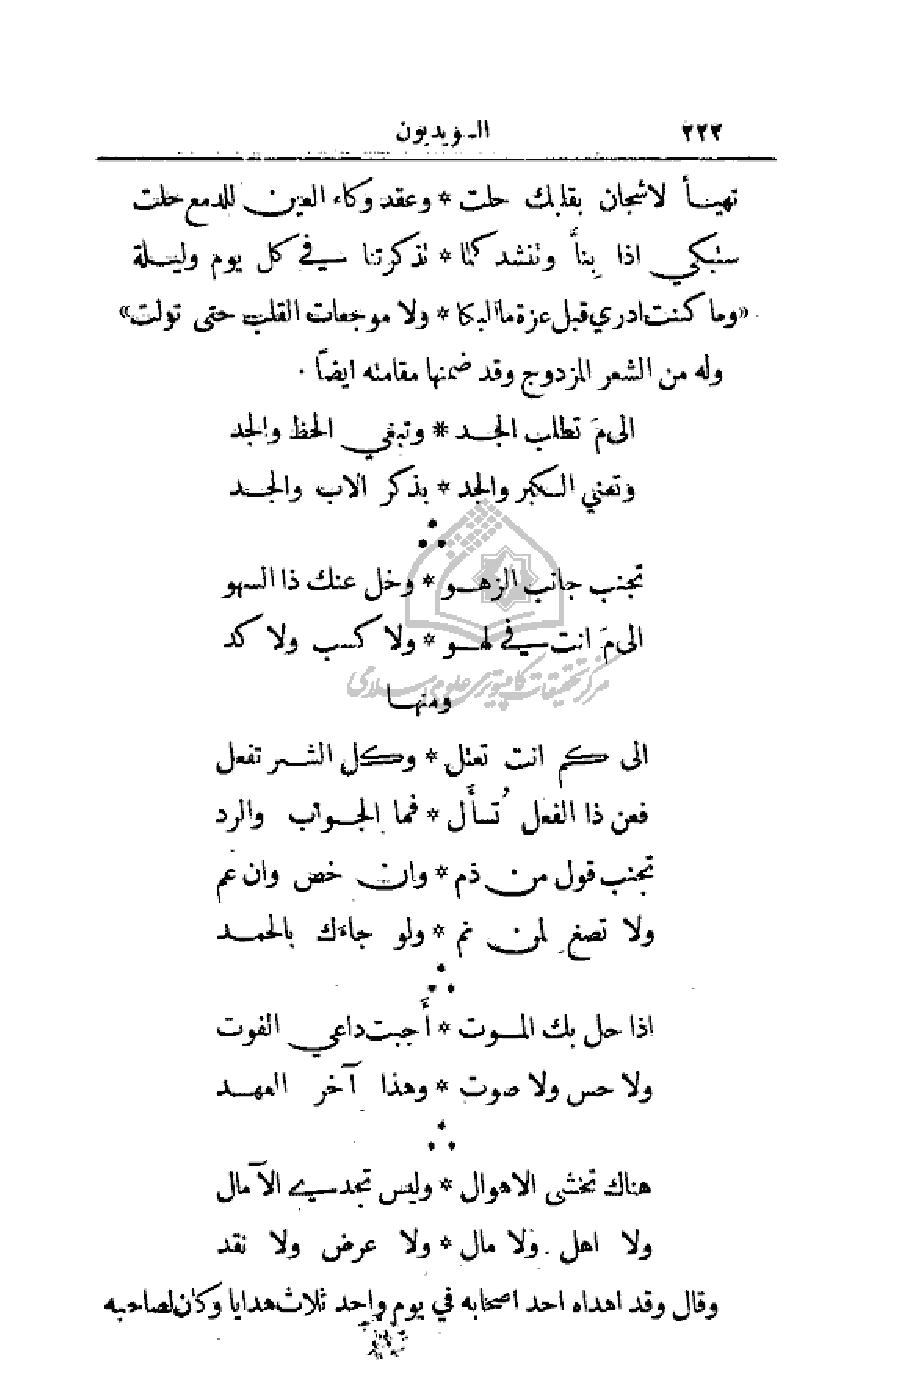 ٢٢٢ السويديون
تهيأ لاشجان بقلبك حلت * وعقد وكاء العين للدمع حلت
ستبكي اذا بِنأ وتنشد كلما * تذكرتنا في كل يوم وليلة
«وما كنت ادري قبل عزة ما البكا * ولا موجعات القلب حتى تولت»
وله من الشعر المزدوج وقد ضمنها مقامته ايضاً .
الىمَ تطلب الجد * وتبغي الحظ والجد
وتعني الكبر والجد * بذكر الاب والجد
تجنب جانب الزهو * وخل عنك ذا السهو
الىمَ انت في لهو * ولا كسب ولا كد
ومنها
الى كم انت تعتل * وكل الشر تفعل
فعن ذا الفعل تُسأَل * فما الجواب والرد
تجنب قول من ذم * وان خص وان عم
ولا تصغِ لمن نم * ولو جاءَك بالحمد
اذا حل بك الموت * أَجبت داعي الفوت
ولا حس ولا صوت * وهذا آخر العهد
هناك تخشى الاهوال * وليس تجدي الآمال
ولا اهل ولا مال * ولا عرض ولا نقد
وقال وقد اهداه احد اصحابه في يوم واحد ثلاث هدايا وكان لصاحبه
مركز تحقيقات كامپيوتری علوم اسلامی